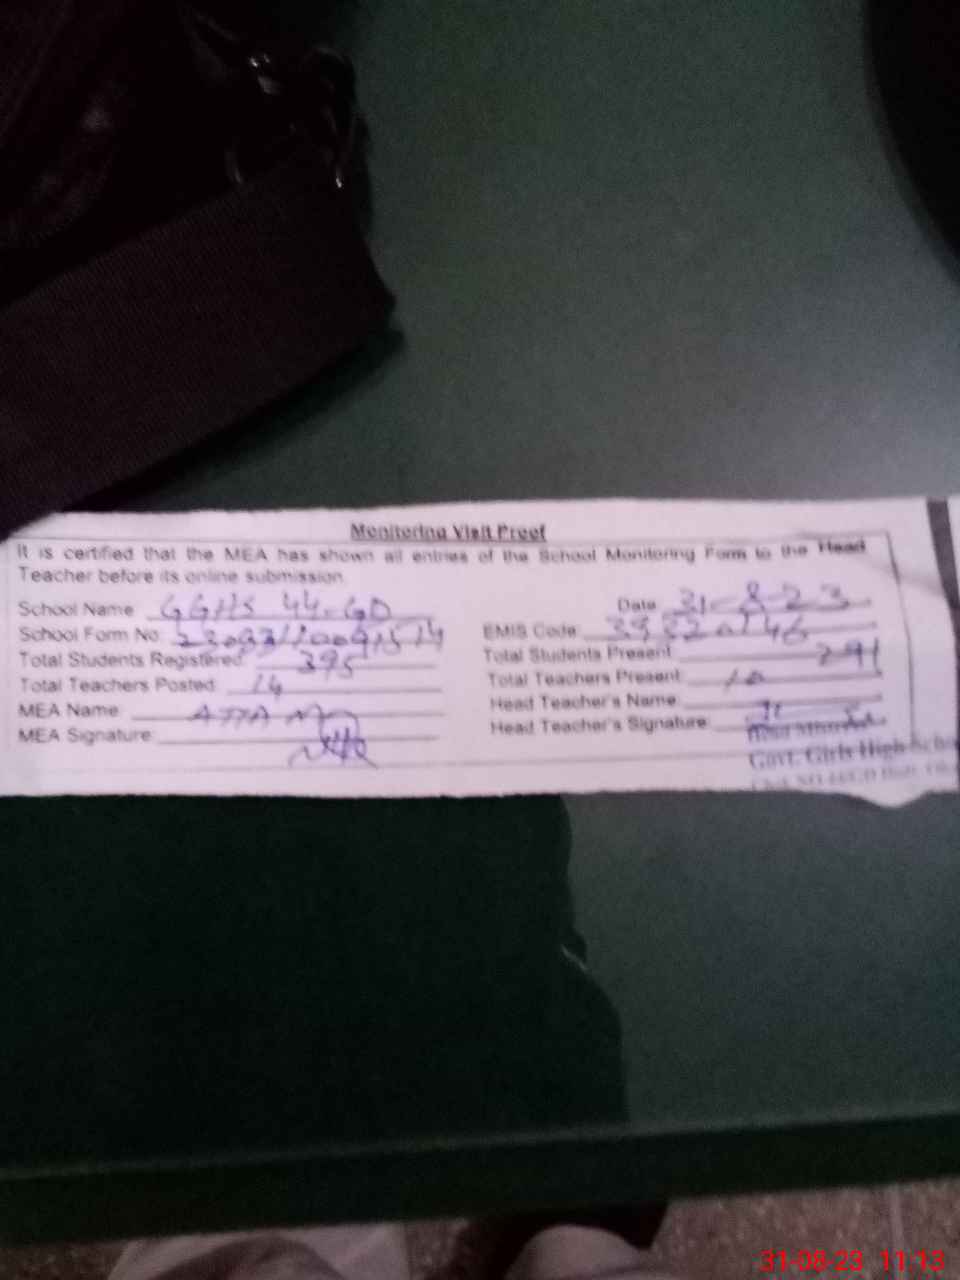 Monitoring Visit Proof
It is certified that the MEA has shown all entries of the School Monitoring Form to the Head
Teacher before its online submission.
School Name GGHS 44-GD Date 31-8-23
School Form No: EMIS Code:
Total Students Registered: 395 Total Students Present: 291
Total Teachers Posted: 14 Total Teachers Present: 10
MEA Name: ATTA Head Teacher's Name:
MEA Signature: Head Teacher's Signature:
Govt. Girls High
31-08-23 11:13